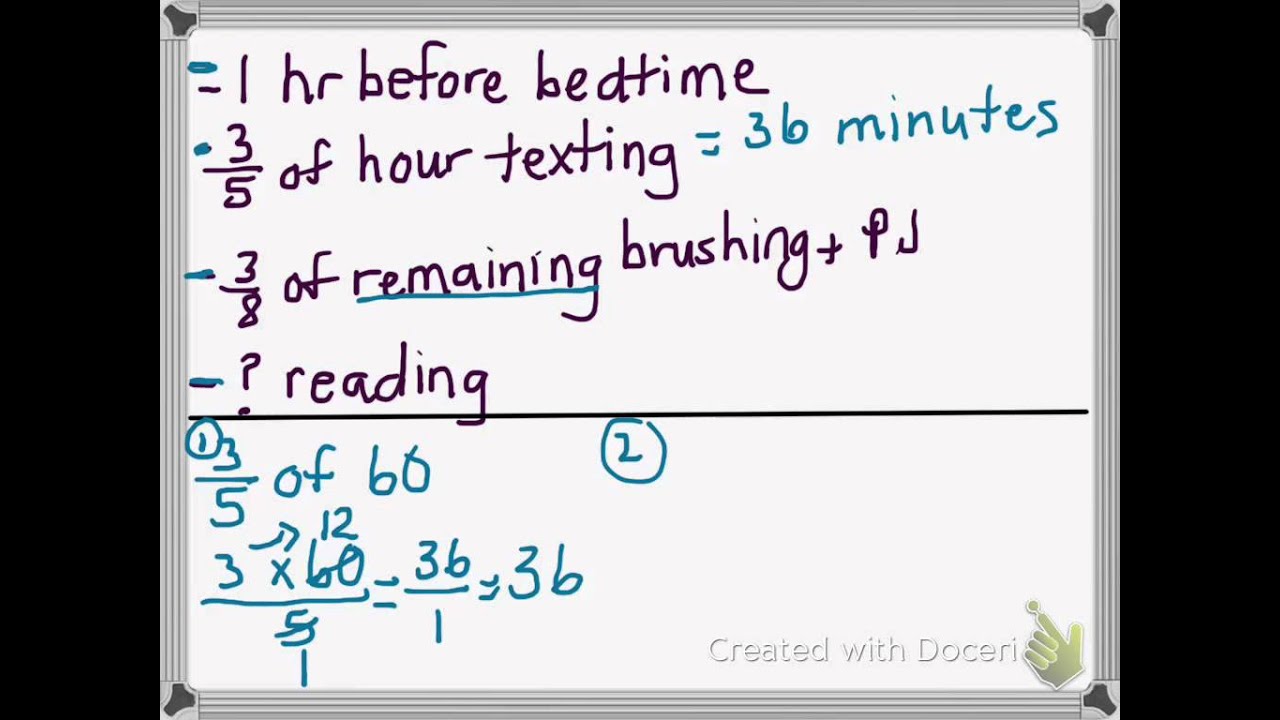 - 1 hr before bedtime
- 3/5 of hour texting = 36 minutes
- 3/8 of remaining brushing + PJ
- ? reading
① 3/5 of 60
②
12
3 × 60 / 5 = 36/1 = 36
1
Created with Doceri